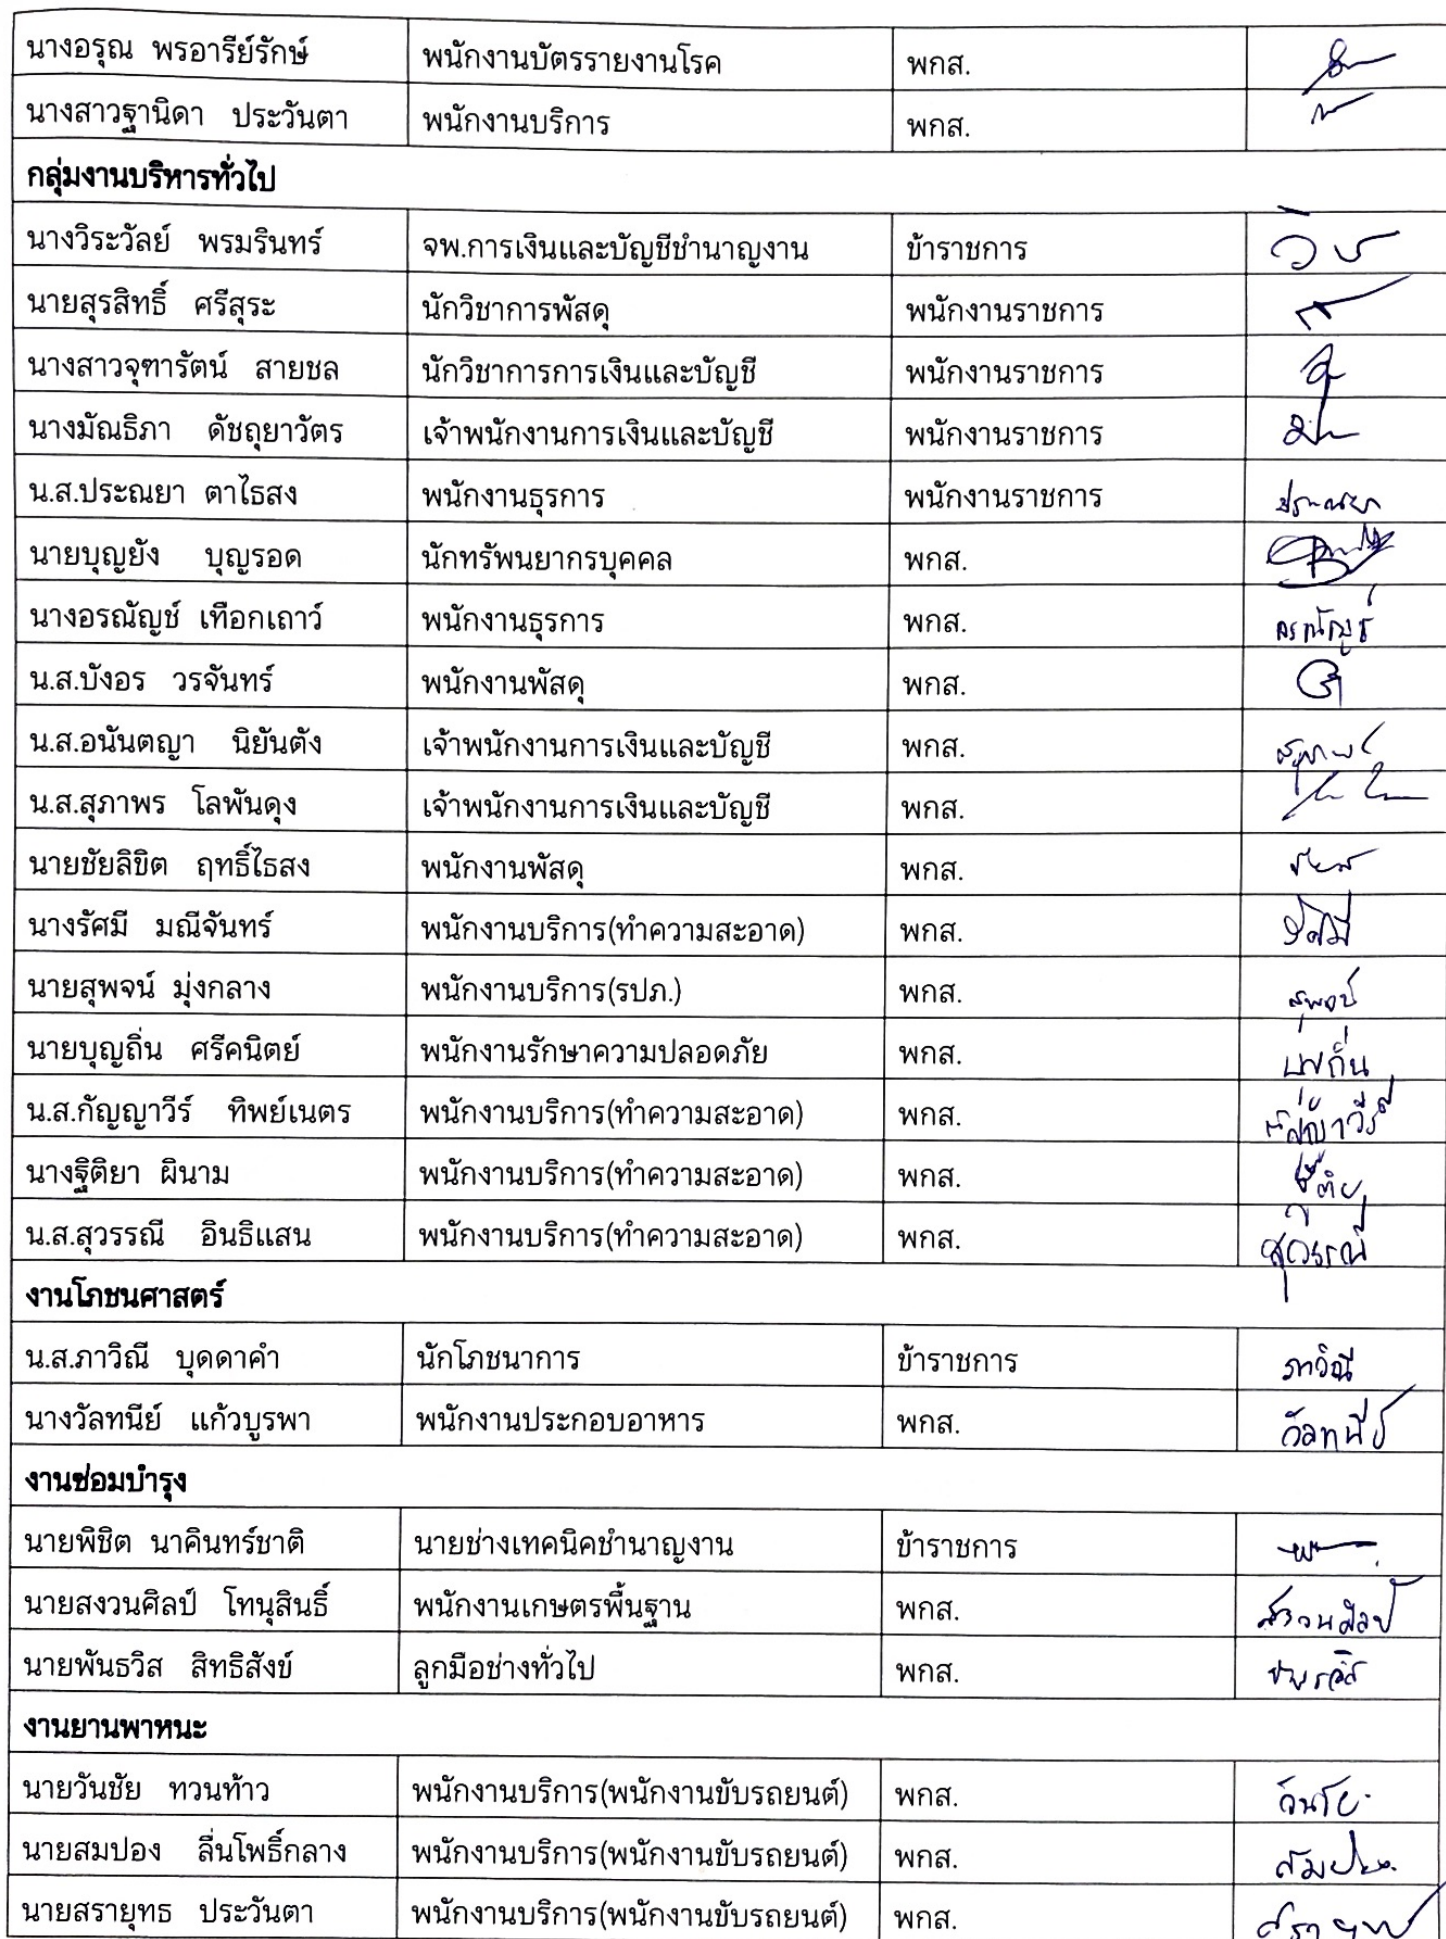 นางอรุณ พรอารีย์รักษ์ พนักงานบัตรรายงานโรค พกส.
นางสาวฐานิดา ประวันตา พนักงานบริการ พกส.
กลุ่มงานบริหารทั่วไป
นางวิระวัลย์ พรมรินทร์ จพ.การเงินและบัญชีชำนาญงาน ข้าราชการ
นายสุรสิทธิ์ ศรีสุระ นักวิชาการพัสดุ พนักงานราชการ
นางสาวจุฑารัตน์ สายชล นักวิชาการการเงินและบัญชี พนักงานราชการ
นางมัณธิภา ดัชถุยาวัตร เจ้าพนักงานการเงินและบัญชี พนักงานราชการ
น.ส.ประณยา ตาไธสง พนักงานธุรการ พนักงานราชการ ประณยา
นายบุญยัง บุญรอด นักทรัพนยากรบุคคล พกส.
นางอรณัญช์ เทือกเถาว์ พนักงานธุรการ พกส. อรณัญช์
น.ส.บังอร วรจันทร์ พนักงานพัสดุ พกส.
น.ส.อนันตญา นิยันตัง เจ้าพนักงานการเงินและบัญชี พกส.
น.ส.สุภาพร โลพันดุง เจ้าพนักงานการเงินและบัญชี พกส.
นายชัยลิขิต ฤทธิ์ไธสง พนักงานพัสดุ พกส.
นางรัศมี มณีจันทร์ พนักงานบริการ(ทำความสะอาด) พกส. รัศมี
นายสุพจน์ มุ่งกลาง พนักงานบริการ(รปภ.) พกส. สุพจน์
นายบุญถิ่น ศรีคนิตย์ พนักงานรักษาความปลอดภัย พกส.
น.ส.กัญญาวีร์ ทิพย์เนตร พนักงานบริการ(ทำความสะอาด) พกส. กัญญาวีร์
นางฐิติยา ผินาม พนักงานบริการ(ทำความสะอาด) พกส.
น.ส.สุวรรณี อินธิแสน พนักงานบริการ(ทำความสะอาด) พกส. สุวรรณี
งานโภชนศาสตร์
น.ส.ภาวิณี บุดดาคำ นักโภชนาการ ข้าราชการ ภาวิณี
นางวัลทนีย์ แก้วบูรพา พนักงานประกอบอาหาร พกส. วัลทนีย์
งานซ่อมบำรุง
นายพิชิต นาคินทร์ชาติ นายช่างเทคนิคชำนาญงาน ข้าราชการ
นายสงวนศิลป์ โทนุสินธิ์ พนักงานเกษตรพื้นฐาน พกส. สงวนศิลป์
นายพันธวิส สิทธิสังข์ ลูกมือช่างทั่วไป พกส.
งานยานพาหนะ
นายวันชัย ทวนท้าว พนักงานบริการ(พนักงานขับรถยนต์) พกส. วันชัย
นายสมปอง ลื่นโพธิ์กลาง พนักงานบริการ(พนักงานขับรถยนต์) พกส. สมปอง
นายสรายุทธ ประวันตา พนักงานบริการ(พนักงานขับรถยนต์) พกส. สรายุทธ